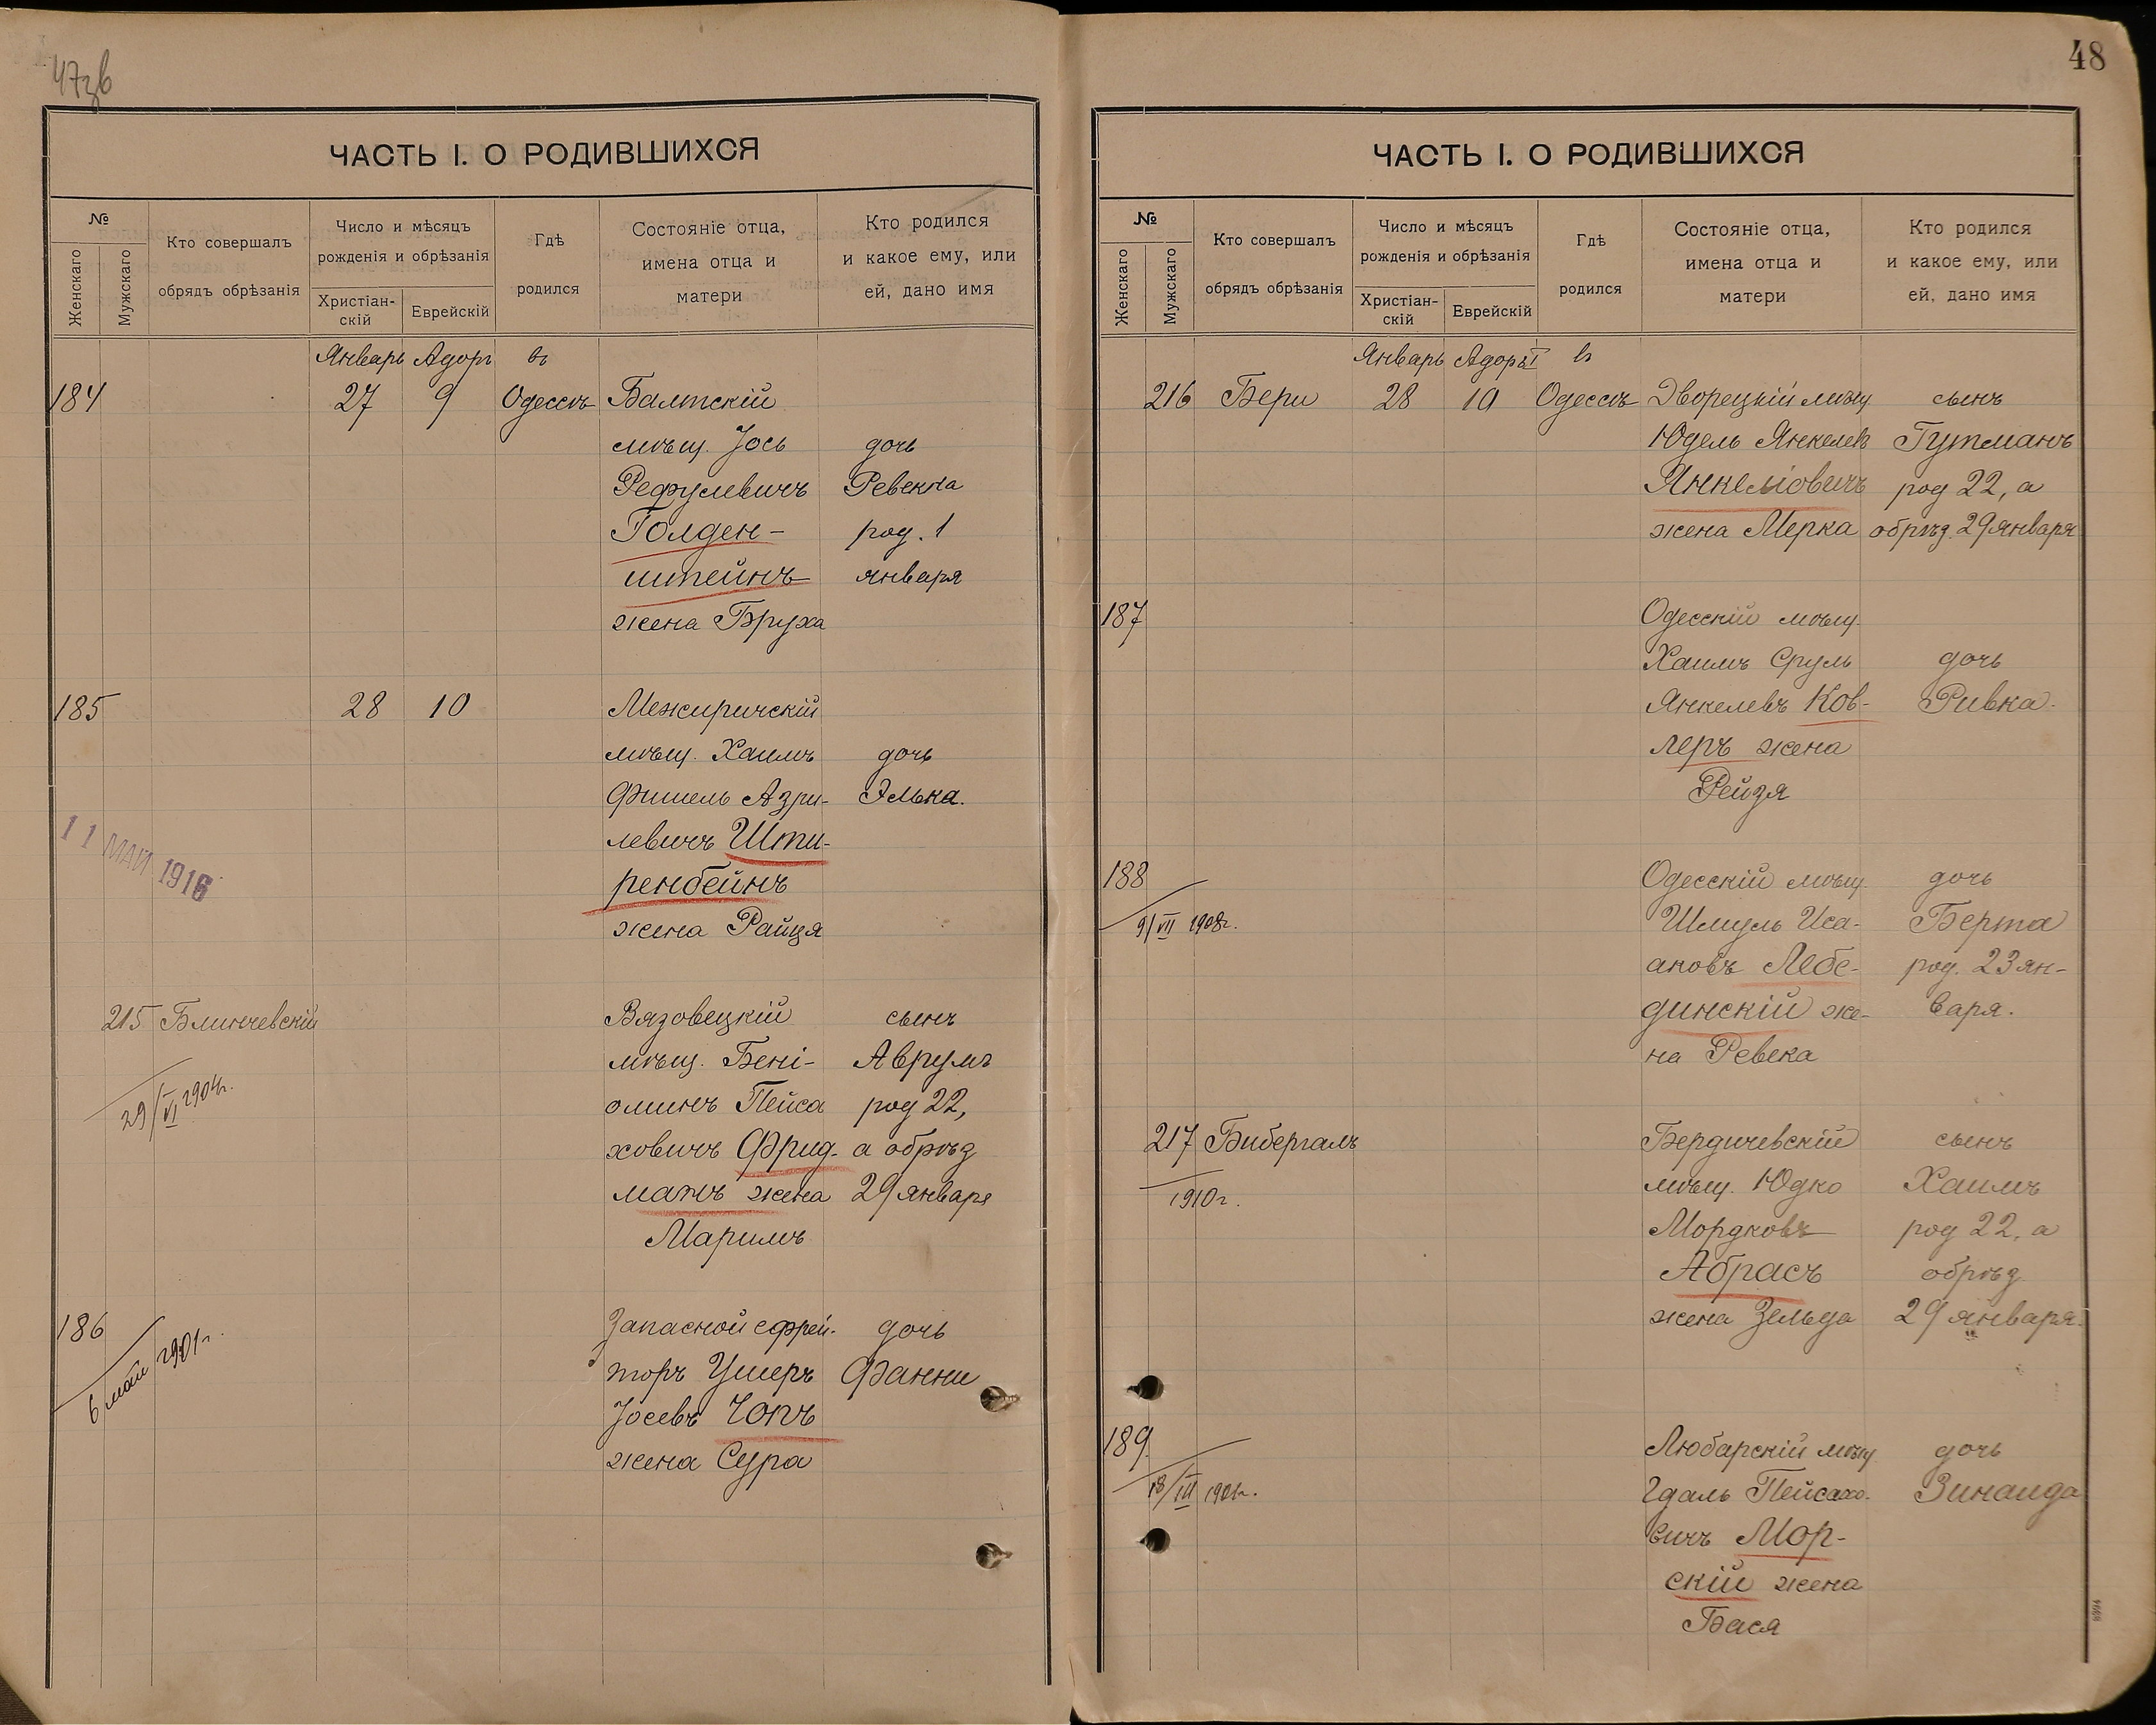 47зв
ЧАСТЬ I. О РОДИВШИХСЯ
№
Женскаго
Мужскаго
Кто совершалъ
обрядъ обрѣзанія
Число и мѣсяцъ
рожденія и обрѣзанія
Христіан-
скій
Еврейскій
Гдѣ
родился
Состояніе отца,
имена отца и
матери
Кто родился
и какое ему, или
ей, дано имя
Январь Адоръ въ
184 27 9 Одессѣ Балтскій
мѣщ. Іось дочь
Рефулевичъ Ревекка
Голден- род. 1
штейнъ января
жена Бруха
185 28 10 Межиричскій
мѣщ. Хаимъ дочь
Фишель Азри- Элька.
левичъ Шти-
ренбейнъ
жена Райця
11 МАЙ 1916
215 Блинчевскій Вязовецкій сынъ
мѣщ. Бені- Аврумъ
оминъ Пейса род 22,
ховичъ Фрид- а обрѣз
манъ жена 29 января
Маримъ
29/VI 1904г.
186 Запасной ефрей- дочь
торъ Ушеръ Фанни
Іосевъ Чопъ
жена Сура
6 май 1901г.
48
ЧАСТЬ I. О РОДИВШИХСЯ
№
Женскаго
Мужскаго
Кто совершалъ
обрядъ обрѣзанія
Число и мѣсяцъ
рожденія и обрѣзанія
Христіан-
скій
Еврейскій
Гдѣ
родился
Состояніе отца,
имена отца и
матери
Кто родился
и какое ему, или
ей, дано имя
Январь Адоръ I в
216 Бери 28 10 Одессѣ Дворецкій мѣщ сынъ
Юдель Янкелев Гутманъ
Янкеліовичъ род 22, а
жена Мерка обрѣз. 29 января
187 Одесскій мѣщ.
Хаимъ Сруль дочь
Янкелевъ Ков- Ривка.
леръ жена
Рейзя
188 Одесскій мѣщ. дочь
9/VII 1908г. Шмуль Иса- Берта
аковъ Лебе- род. 23 ян-
динскій же- варя.
на Ревека
217 Бибергалъ Бердичевскій сынъ
1910г. мѣщ. Юдко Хаимъ
Мордковъ род 22, а
Абрасъ обрѣз
жена Зельда 29 января.
189 Любарскій мѣщ дочь
18/III 1901г. Гдаль Пейсахо- Зинаида
вичъ Мор-
скій жена
Бася